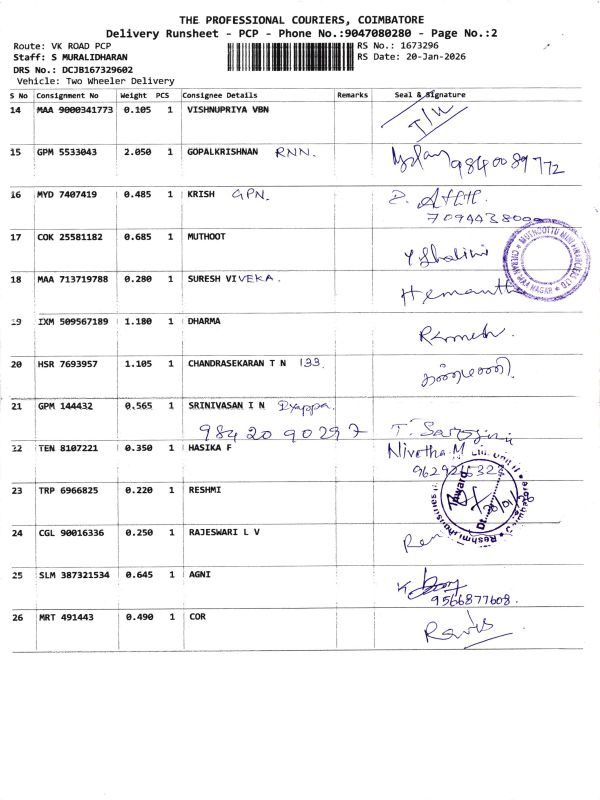 THE PROFESSIONAL COURIERS, COIMBATORE
Delivery Runsheet - PCP - Phone No.:9047080280 - Page No.:2
Route: VK ROAD PCP RS No.: 1673296
Staff: S MURALIDHARAN RS Date: 20-Jan-2026
DRS No.: DCJB167329602
Vehicle: Two Wheeler Delivery
S No Consignment No Weight PCS Consignee Details Remarks Seal & Signature
14 MAA 9000341773 0.105 1 VISHNUPRIYA VBN
15 GPM 5533043 2.050 1 GOPALKRISHNAN RNN. 9840089772
16 MYD 7407419 0.485 1 KRISH GPN.
17 COK 25581182 0.685 1 MUTHOOT Y Shalini
18 MAA 713719788 0.280 1 SURESH VIVEKA. Hemanth
19 IXM 509567189 1.180 1 DHARMA Ramesh.
20 HSR 7693957 1.105 1 CHANDRASEKARAN T N 133.
21 GPM 144432 0.565 1 SRINIVASAN I N
9842090297 T. Sarojini
22 TEN 8107221 0.350 1 HASIKA F Nivetha M
23 TRP 6966825 0.220 1 RESHMI
24 CGL 90016336 0.250 1 RAJESWARI L V
25 SLM 387321534 0.645 1 AGNI
9566877608.
26 MRT 491443 0.490 1 COR